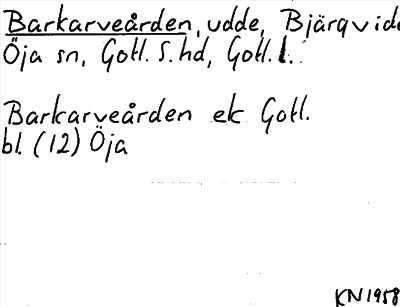 Barkarveården, udde, Bjärgvide
Öja sn, Gotl. S. hd, Gotl. l.
Barkarveården ek Gotl.
bl. (12) Öja
KN 1958